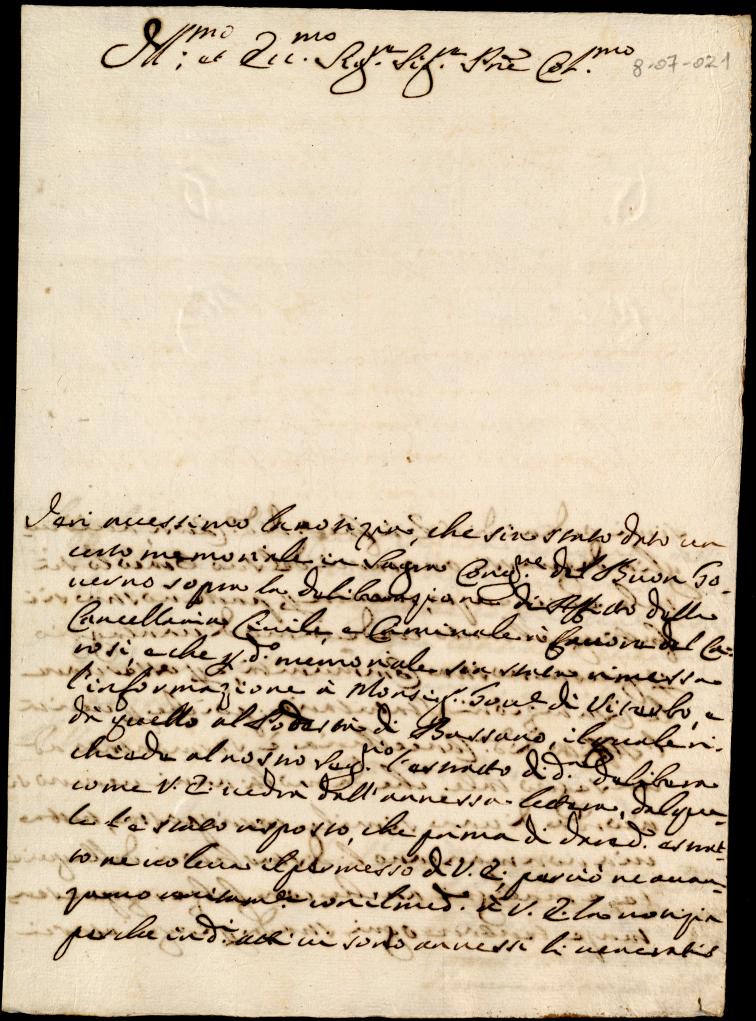 Ill.mo et Ecc.mo Sig.re Sig.re P.ne Col.mo
8-07-021
Ieri avessimo la notizia, che sia stato dato un
certo memoriale in Sagra Cong.ne del Buon Go-
verno sopra la deliberazione di Affitto della
Cancellaria Civile, e Criminale in favore del Ca-
rosi, e che p d.o memoriale sia stata rimessa
l'informazione à Monsig.r Gov.e di Viterbo, e
da quello al Podestà di Bassano, il quale ri-
chiede al nostro Seg.rio l'estratto di d.a delibera
come V. E. vedrà dall'annessa lettera, dal qua-
le l'è stato risposto, che prima di dare d.o estrat-
to ne voleva il permesso di V. E., perciò ne avan-
zamo unitam.e con il med.o à V. E. la notizia
perche in d.i atti vi sono annessi li venerati